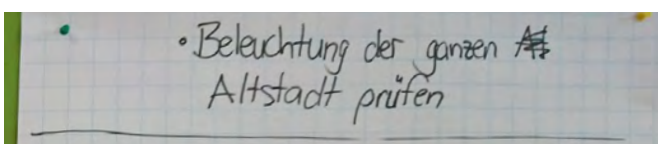 • Beleuchtung der ganzen
Altstadt prüfen